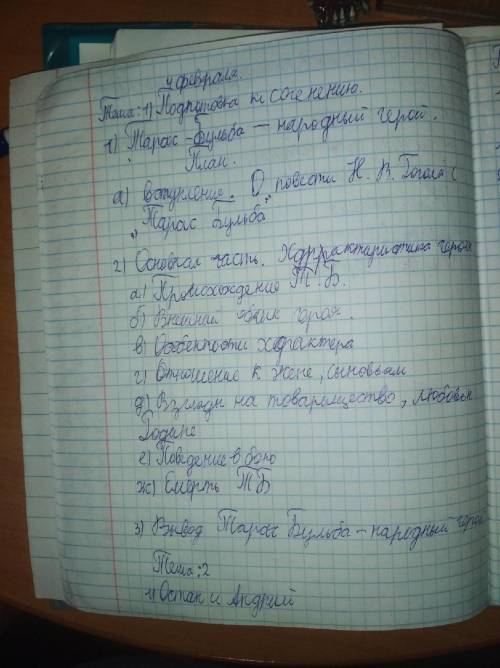 4 февраля.
Тема: 1) Подготовка к соченению.
1) Тарас Бульба – народный герой.
План.
а) Вступление. О повести Н. В. Гоголя
„Тарас Бульба
2) Основная часть. Характеристика героя
а) Происхождение Т. Б.
б) Внешний облик героя.
в) Особенности характера
г) Отношение к жене, сыновьям
д) Взгляды на товарищество, любовь к
Родине
е) Поведение в бою
ж) Смерть ТБ
3) Вывод Тарас Бульба – народный герой
Тема: 2
1) Остап и Андрий